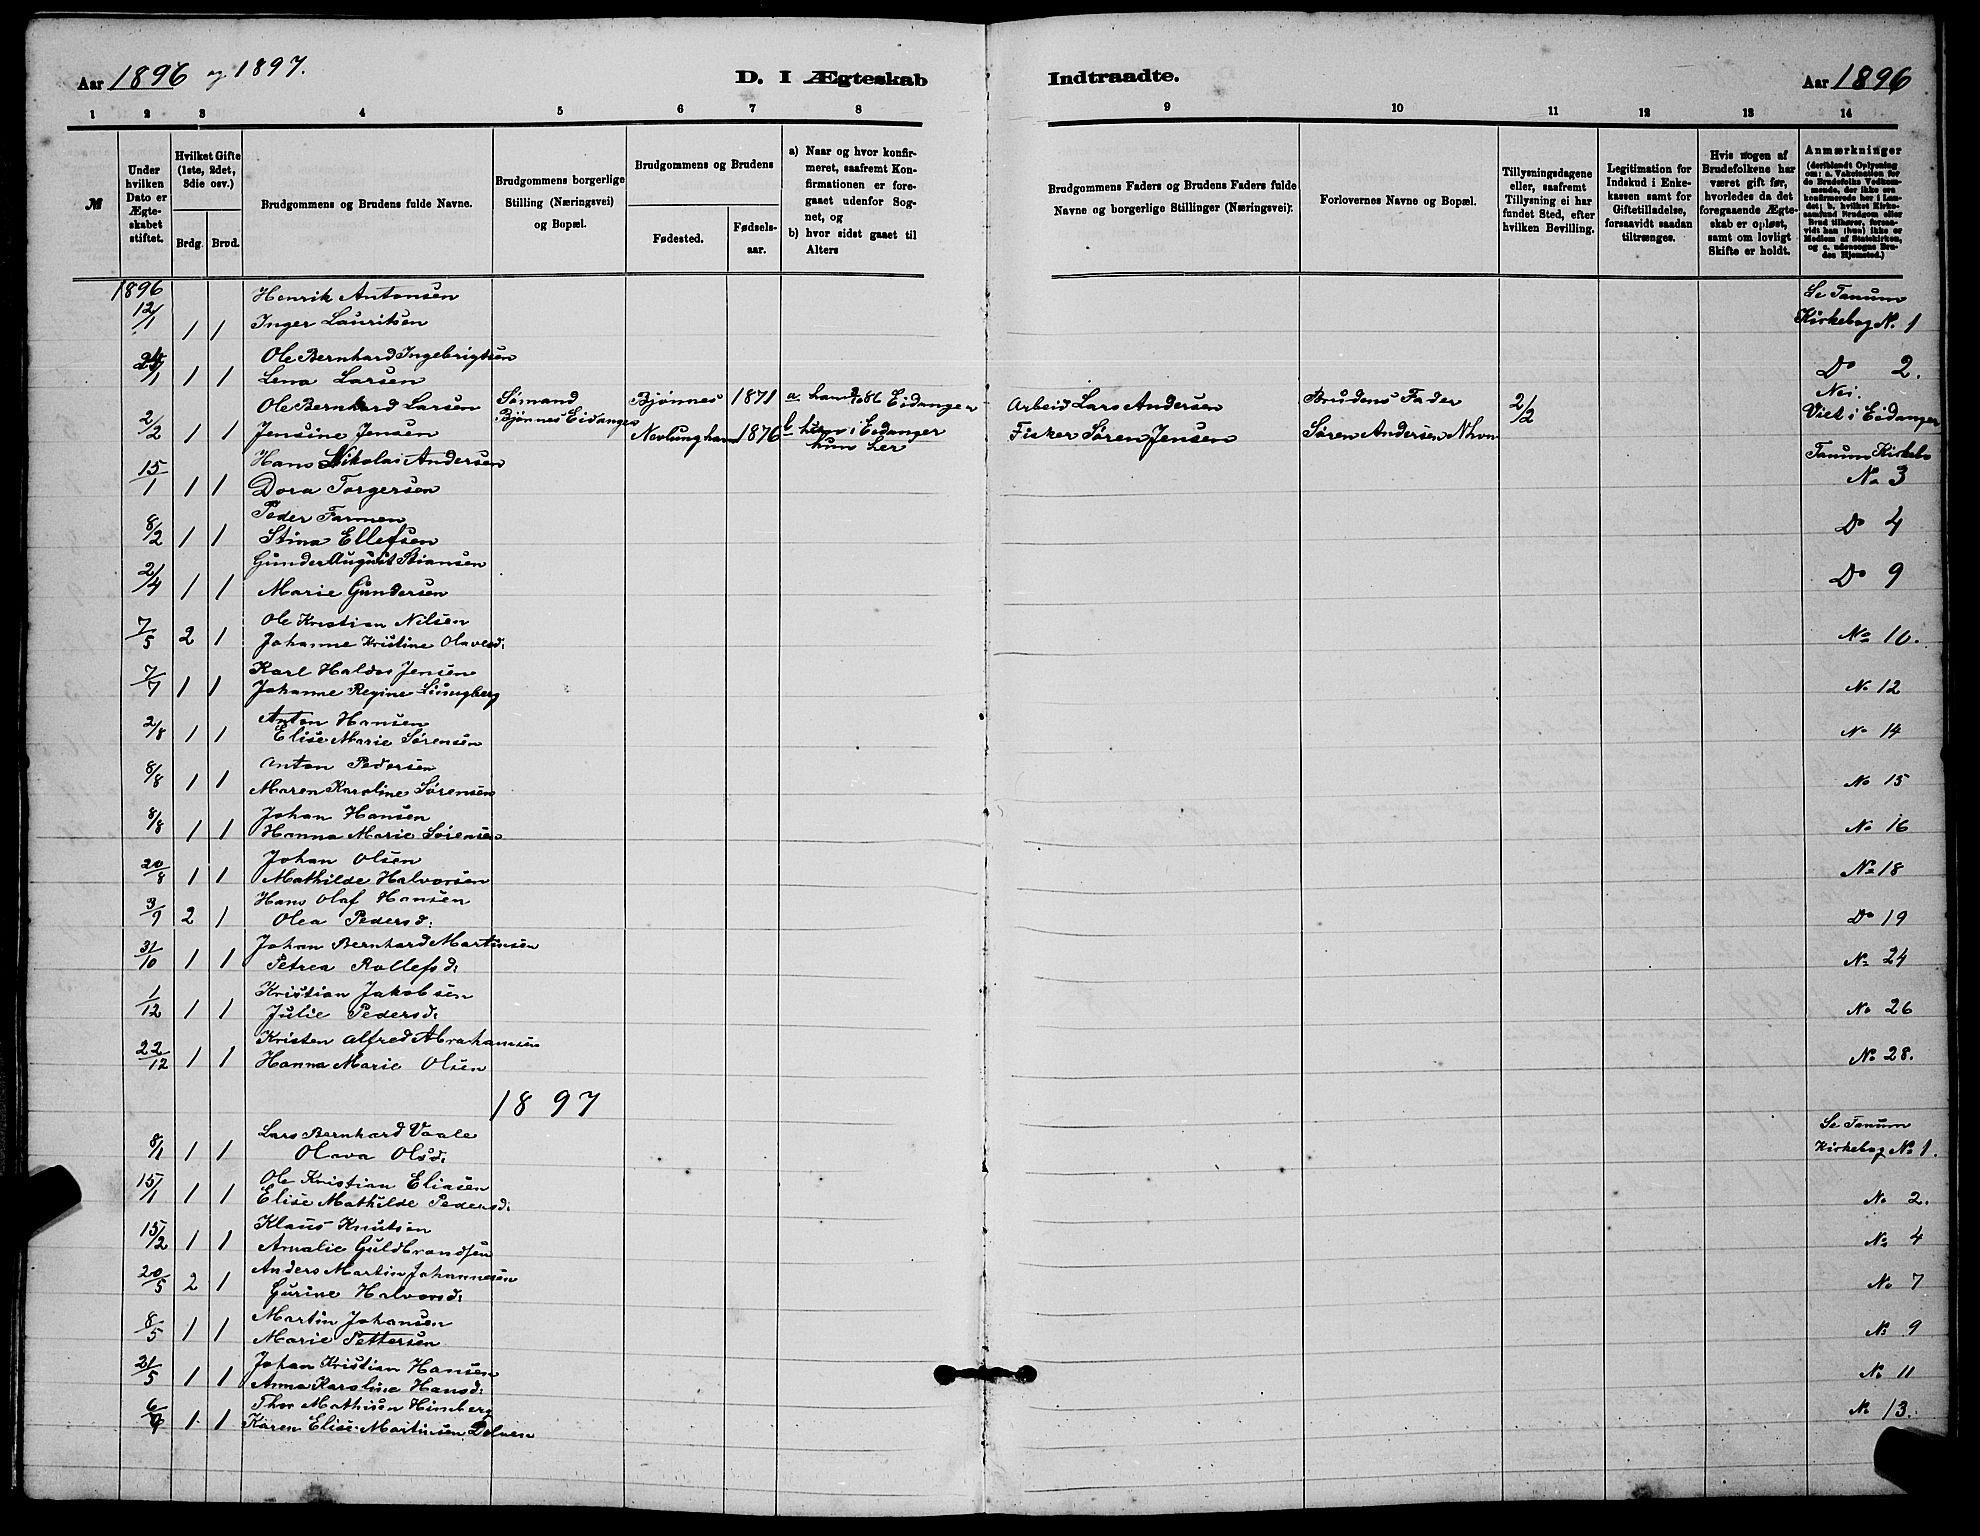 Aar 1896 og 1897.
D. I Ægteskab Indtraadte.
Aar 1896
1 2 3 4 5 6 7 8 9 10 11 12 13 14
№
Under hvilken Dato er Ægteskabet stiftet.
Hvilket Gifte (1ste, 2det, 3die osv.)
Brdg. Brud.
Brudgommens og Brudens fulde Navne.
Brudgommens borgerlige Stilling (Næringsvei) og Bopæl.
Brudgommens og Brudens
Fødested.
Fødselsaar.
a) Naar og hvor konfirmeret, saafremt Konfirmationen er foregaaet udenfor Sognet, og
b) hvor sidst gaaet til Alters
Brudgommens Faders og Brudens Faders fulde Navne og borgerlige Stillinger (Næringsvei).
Forlovernes Navne og Bopæl.
Tillysningsdagene eller, saafremt Tillysning ei har fundet Sted, efter hvilken Bevilling.
Legitimation for Indskud i Enkekassen samt for Giftetilladelse, forsaavidt saadan tiltrænges.
Hvis nogen af Brudefolkene har været gift før, hvorledes da det foregaaende Ægteskab er opløst, samt om lovligt Skifte er holdt.
Anmærkninger
(deriblandt Oplysning om: a. Vakcination for de Brudefolks Vedkommende, der ikke ere konfirmerede her i Landet; b. hvilket Kirkesamfund Brudgom eller Brud tilhører, forsaavidt han (hun) ikke er Medlem af Statskirken, og c. udensogns Brudes Hjemsted.)
1896
Henrik Antonsen Se Tanum
12/1 1 1 Inger Lauritsen Kirkebog No. 1
Ole Bernhard Ingebrigtsen
1 1 Lena Larsen Do 2.
Ole Bernhard Larsen Sømand Bjønnes 1871 a han 86 Eidanger Arbeid Lars Andersen Brudens Fader 2/2 Nei.
2/2 1 1 Jensine Jensen Bjønnes Eidanger Nevlunghavn 1876 b han i Eidanger hun her Fisker Søren Jensen Søren Andersen Nhvn Viet i Eidanger
Hans Nikolai Andersen Tanum Kirkebo
15/1 1 1 Dora Torgersen No 3
Peder Farmen
8/2 1 1 Stina Ellefsen Do 4
Gunder August Stiansen
2/4 1 1 Marie Gundersen Do 9
Ole Kristian Nilsen
7/5 2 1 Johanne Kristine Olavesd: No 10.
Karl Haldor Jensen
7/7 1 1 Johanne Regine Liungberg No 12
Anton Hansen
2/8 1 1 Elise Marie Sørensen No 14
Anton Pedersen
8/8 1 1 Maren Karoline Sørensen No 15
Johan Hansen
8/8 1 1 Hanna Marie Sørensen No 16
Johan Olsen
20/8 1 1 Mathilde Halvorsen No 18
Hans Olaf Hansen
3/9 2 1 Olea Pedersd: Do 19
Johan Bernhard Martinsen
31/10 1 1 Petrea Rollefsd: No 24
Kristian Jakobsen
1/12 1 1 Julie Pedersd: No 26
Kristen Alfred Abrahamsen
22/12 1 1 Hanna Marie Olsen No 28.
1897
Lars Bernhard Vaale Se Tanum
8/1 1 1 Olava Olsd: Kirkebog No 1.
Ole Kristian Eliasen
15/1 1 1 Elise Mathilde Pedersd: No 2.
Klaus Knutsen
15/2 1 1 Amalie Guldbrandsen No 4
Anders Martin Johannesen
20/5 2 1 Gurine Halvorsd: No 7
Martin Johansen
8/5 1 1 Marie Pettersen No 9
Johan Kristian Hansen
21/5 1 1 Anna Karoline Hansd: No 11
Thor Mathisen Himberg
1 1 Karen Elise Martinsen No 13.